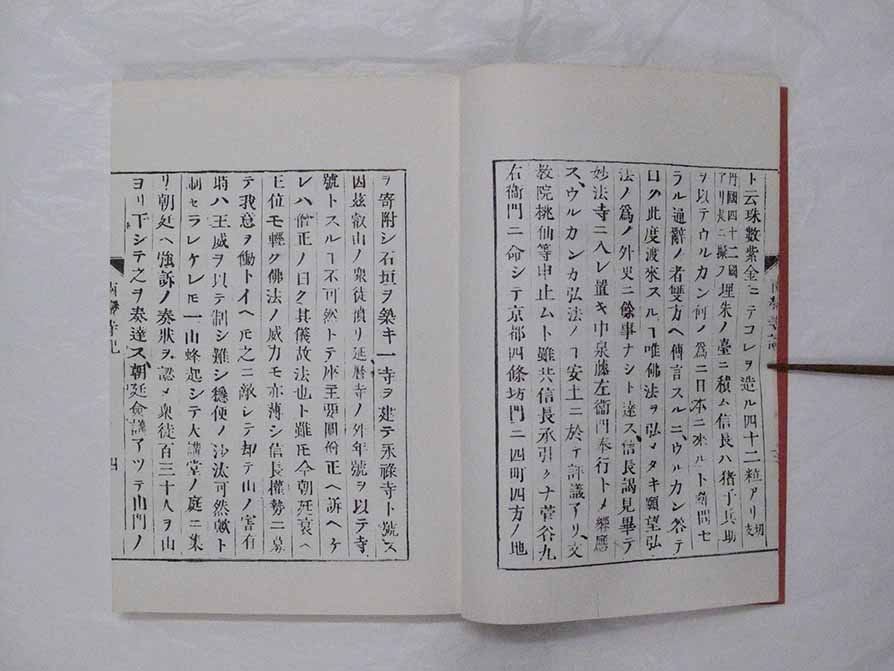 ト云珠數紫金ニテコレヲ造ル四十二粒アリ切支
丹國四十二國
アリ夫ニ擬フ埋朱ノ臺ニ積ム信長ハ猪子兵助
ヲ以テウルカン何ノ爲ニ日本ニ來ルト尋問セ
ラル通辭ノ者雙方ヘ傳言スルニ、ウルカン答テ
曰ク此度渡來スルヿ唯佛法ヲ弘メタキ願望弘
法ノ爲ノ外更ニ餘事ナシト達ス、信長謁見畢テ
妙法寺ニ入レ置キ中泉藤左衞門奉行トメ饗應
ス、ウルカンカ弘法ノヿ安土ニ於テ評議アリ、文
敎院桃仙等申止ムト雖共信長承引ナク菅谷九
右衞門ニ命シテ京都四條坊門ニ四町四方ノ地
南蠻寺記
ヲ寄附シ石垣ヲ築キ一寺ヲ建テ永祿寺ト號ス
因茲叡山ノ衆徒憤リ延曆寺ノ外年號ヲ以テ寺
號トスルヿ不可然トテ座主要關僧正ヘ訴ヘケ
レハ僧正ノ曰ク其儀故法也ト雖モ今朝廷衰ヘ
王位モ輕ク佛法ノ威力モ亦薄シ信長權勢ニ募
テ我意ヲ働トイヘ𪜈之ニ敵シテ却テ山ノ害有
時ハ王威ヲ以テ制シ難シ穩便ノ沙汰可然歟ト
制セラレケレ𪜈一山蜂起シテ大講堂ノ庭ニ集
リ朝廷ヘ強訴ノ奏狀ヲ認メ衆徒百三十人ヲ山
ヨリ下シテ之ヲ奏達ス、朝廷僉議アツテ山門ノ
南蠻寺記
四